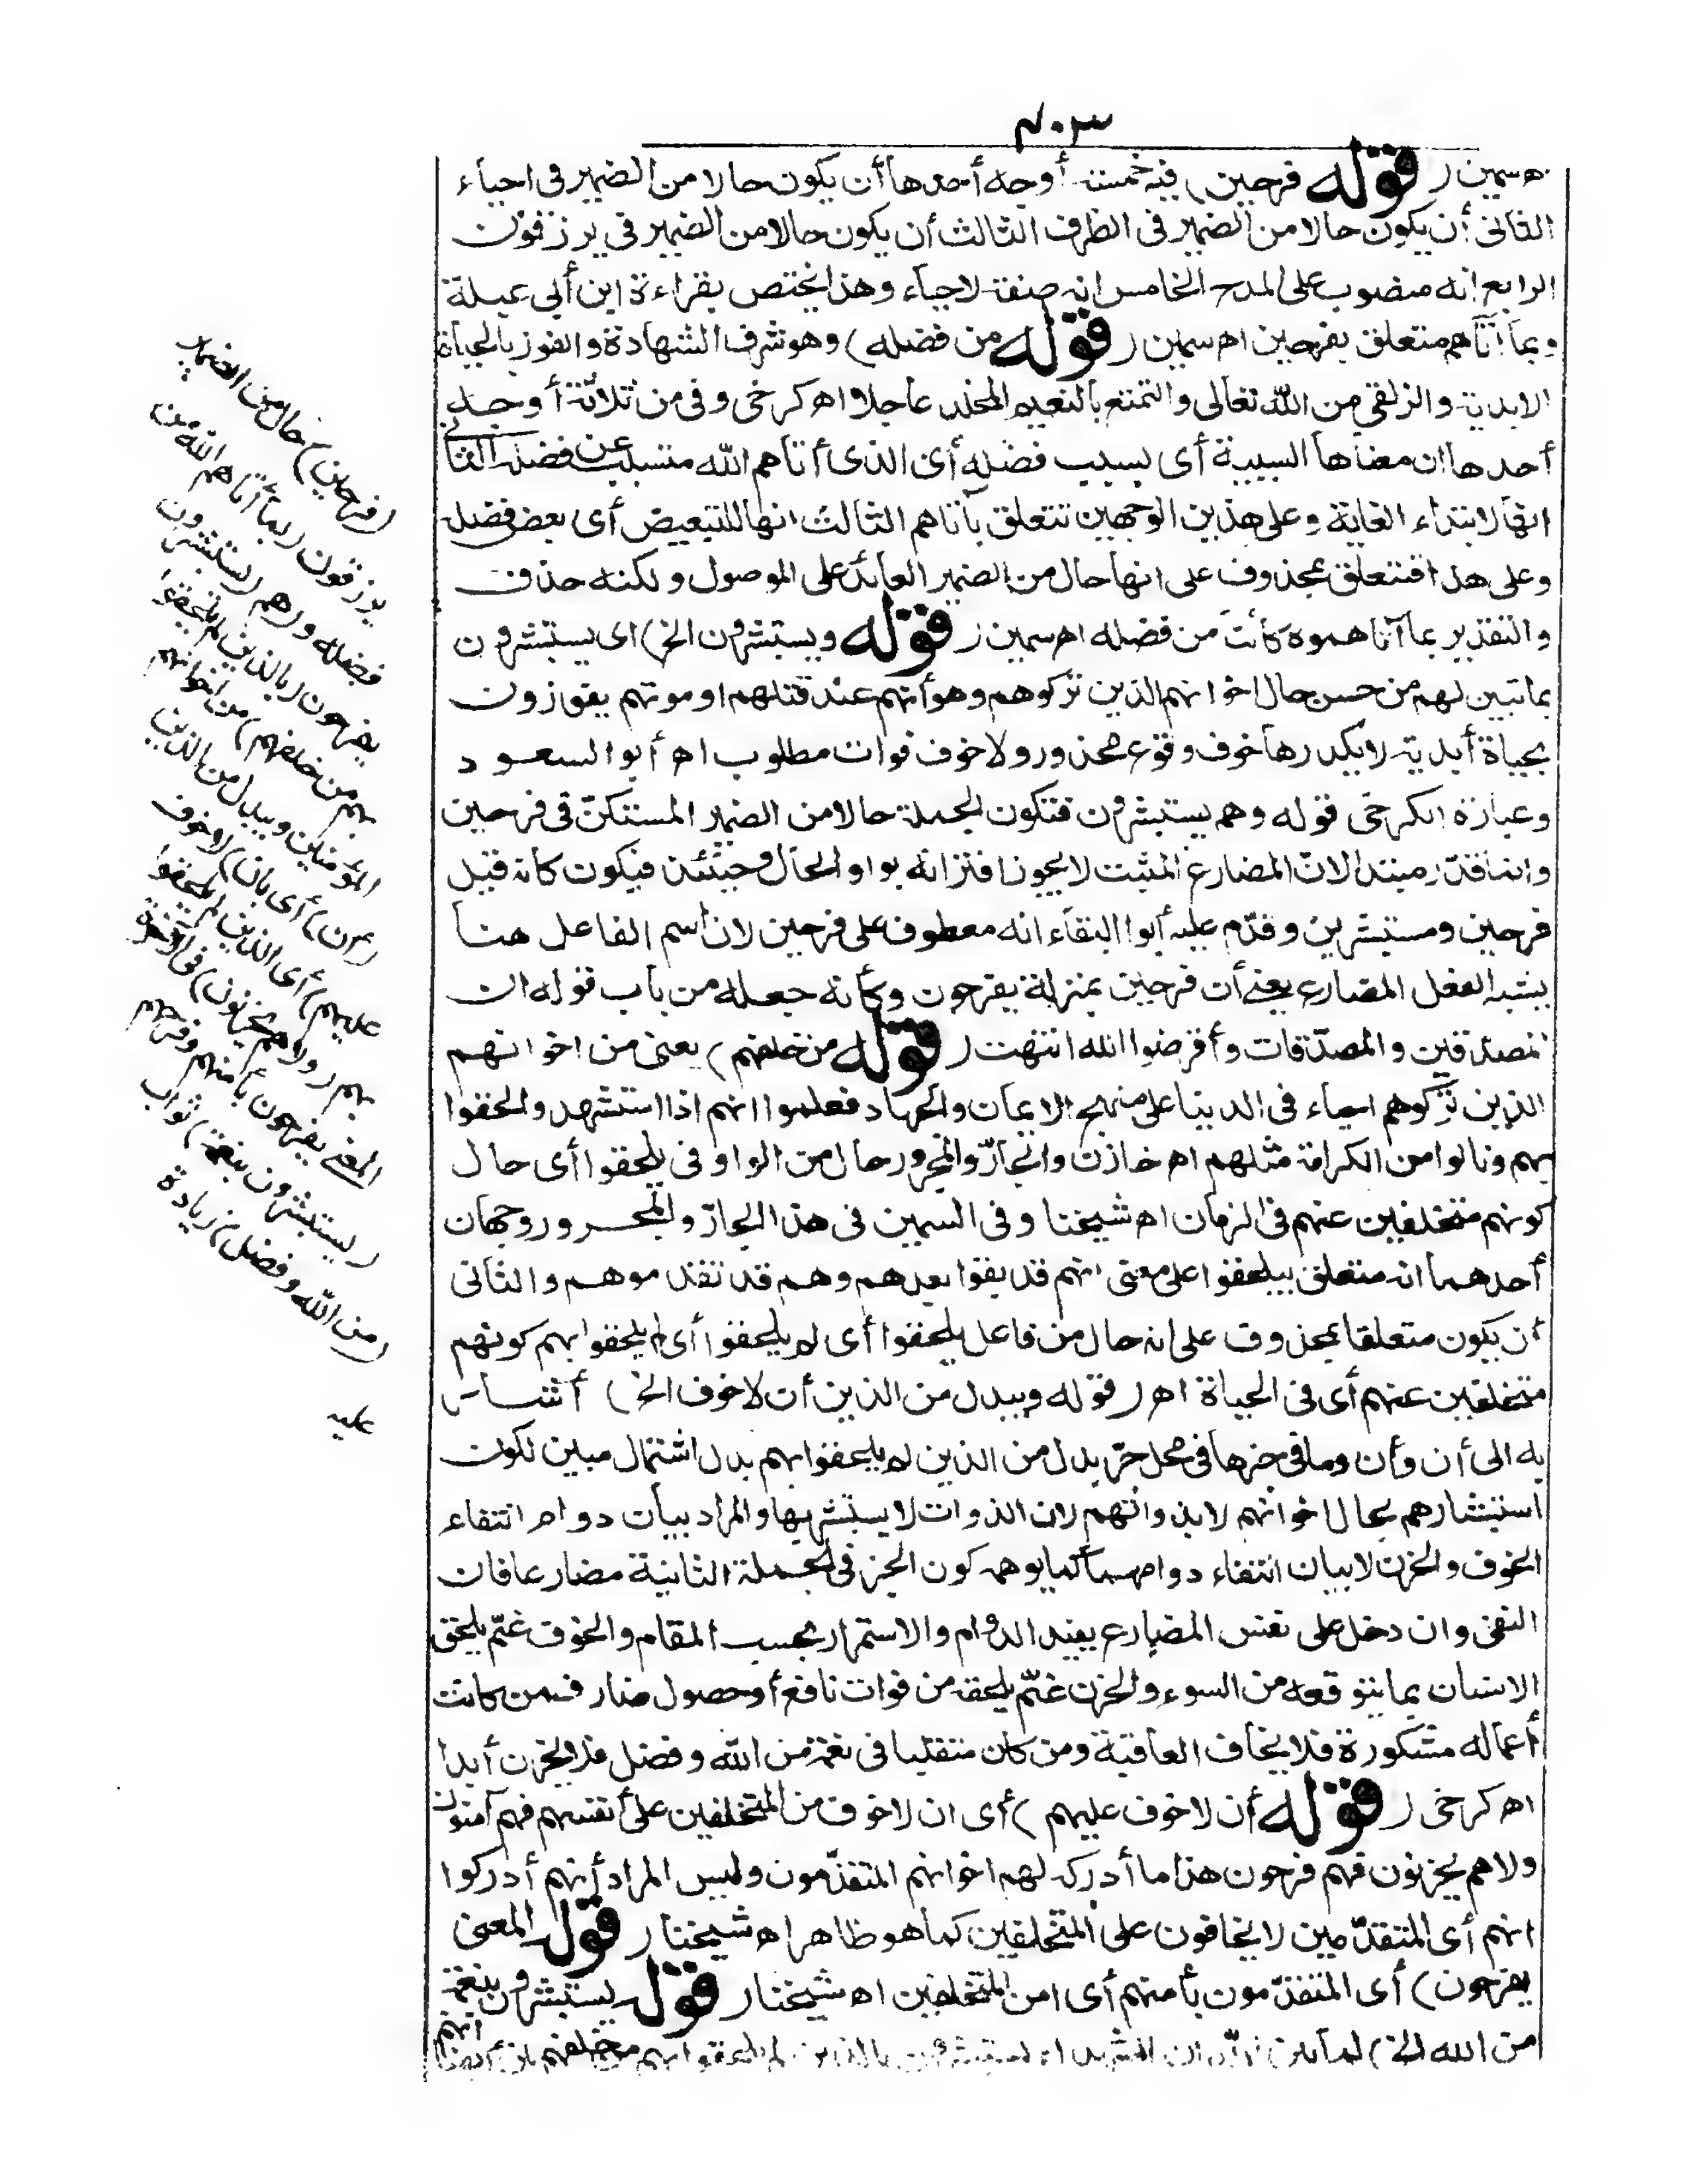 ٣٠٢
اه سمين (قوله فرحين) فيه خمسة أوجه أحدها أن يكون حالا من الضمير فى احياء
الثانى أن يكون حالا من الضمير فى الظرف الثالث أن يكون حالا من الضمير فى يرزقون
الرابع انه منصوب على المدح الخامس انه صفة لاحياء وهذا يختص بقراءة ابن أبى عبلة
وبما آتاهم متعلق بفرحين اه سمين (قوله من فضله) وهو شرف الشهادة والفوز بالحياة
الابدية والزلفى من الله تعالى والتمتع بالنعيم المخلد عاجلا اه كرخى وفى من ثلاثة أوجه
أحدها ان معناها السببية أى بسبب فضله أى الذى أتاهم الله متسبب عن فضله الثانى
انها لابتداء الغاية وعلى هذين الوجهين تتعلق بآتاهم الثالث انها للتبعيض أى بعض فضله
وعلى هذا فتتعلق بمحذوف على انها حال من الضمير العائد على الموصول ولكنه حذف
والتقدير بما آتاهموه كائنا من فضله اه سمين (قوله ويستبشرون الخ) اى يستبشرون
بما تبين لهم من حسن حال اخوانهم الذين تركوهم وهو أنهم عند قتلهم او موتهم يفوزون
بحياة أبدية لا يكدرها خوف وقوع محذور ولا خوف فوات مطلوب اه أبو السعود
وعبارة الكرخى قوله وهم يستبشرون فتكون الجملة حالا من الضمير المستكنّ فى فرحين
وانما قدّر مبتدا لانّ المضارع المثبت لا يجوز اقترانه بواو الحال وحينئذ فيكون كانه قيل
فرحين ومستبشرين وقدّم عليه أبوا البقاء انه معطوف على فرحين لان اسم الفاعل هنا
يشبه الفعل المضارع يعنى أن فرحين بمنزلة يفرحون وكأنه جعله من باب قوله ان
المصدقين والمصدّقات وأقرضوا الله انتهت (قوله من خلفهم) يعنى من اخوانهم
الذين تركوهم احياء فى الدنيا على منهج الايمان والجهاد فعلموا انهم اذا استشهد والحقوا
بهم ونالوا من الكرامة مثلهم اه خازن والجارّ والمجرور حال من الواو فى يلحقوا أى حال
كونهم متخلفين عنهم فى الزمان اه شيخنا وفى السمين فى هذا الجارّ والمجرور وجهان
أحدهما انه متعلق بيلحقوا على معنى انهم قد بقوا بعدهم وهم قد تقدموهم والثانى
أن يكون متعلقا بمحذوف على انه حال من فاعل يلحقوا أى لم يلحقوا أى لم يلحقوا بهم كونهم
متخلفين عنهم أى فى الحياة اه (قوله ويبدل من الذين أن لا خوف الخ) أشار
به الى أن وأن وما فى خبرها فى محل جرّ بدل من الذين لم يلحقوا بهم بدل اشتمال مبين لكون
استبشارهم بحال اخوانهم لا بذواتهم لان الذوات لا يستبشر بها والمراد بيان دوام انتفاء
الخوف والحزن لا بيان انتفاء دوامهما كما يوهمه كون الخبر فى الجملة الثانية مضارعا فان
النفى وان دخل على نفس المضارع يفيد الدوام والاستمرار بحسب المقام والخوف غمّ يلحق
الانسان بما يتوقعه من السوء والحزن غمّ يلحقه من فوات نافع أو حصول ضار فمن كانت
أعماله مشكورة فلا يخاف العاقبة ومن كان متقلبا فى نعمة من الله وفضل فلا يحزن أبدا
اه كرخى (قوله أن لا خوف عليهم) أى ان لا خوف من المتخلفين على أنفسهم فهم آمنون
ولا هم يحزنون فهم فرحون هذا ما أدركه لهم اخوانهم المتقدّمون وليس المراد أنهم أدركوا
انهم أى المتقدّمين لا يخافون على المتخلفين كما هو ظاهر اه شيخنا (قوله المعنى
يفرحون) أى المتقدّمون بأمنهم أى امن المتخلفين اه شيخنا (قوله يستبشرون بنعمة
من الله الخ) لما بين ان الشهداء يستبشرون بالذين لم يلحقوا بهم من خلفهم أنهم
(فرحين) حال من الضمير
يرزقون (بما أتاهم الله من
فضله و) هم (يستبشرون
يفرحون (بالذين لم يلحقوا
بهم من خلفهم) من اخوانهم
المؤمنين ويبدل من الذين
(أن) أى بان (لا خوف
عليهم) أى الذين لم يلحقوا
بهم (ولا هم يحزنون) فى الآخرة
المعنى يفرحون بأمنهم وفرحهم
(يستبشرون بنعمة) ثواب
(من الله وفضل) زيادة
عليه